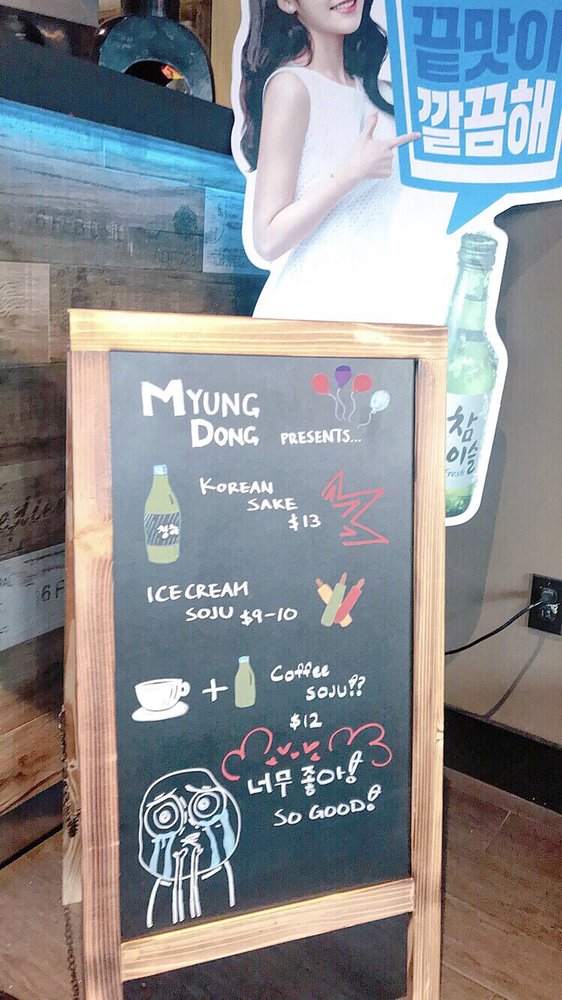 끝맛이
깔끔해
참
이슬
fresh
MYUNG
DONG PRESENTS...
KOREAN
SAKE
$13
ICE CREAM
SOJU $9-10
+
Coffee
SOJU!?
$12
너무 좋아!
SO GOOD!